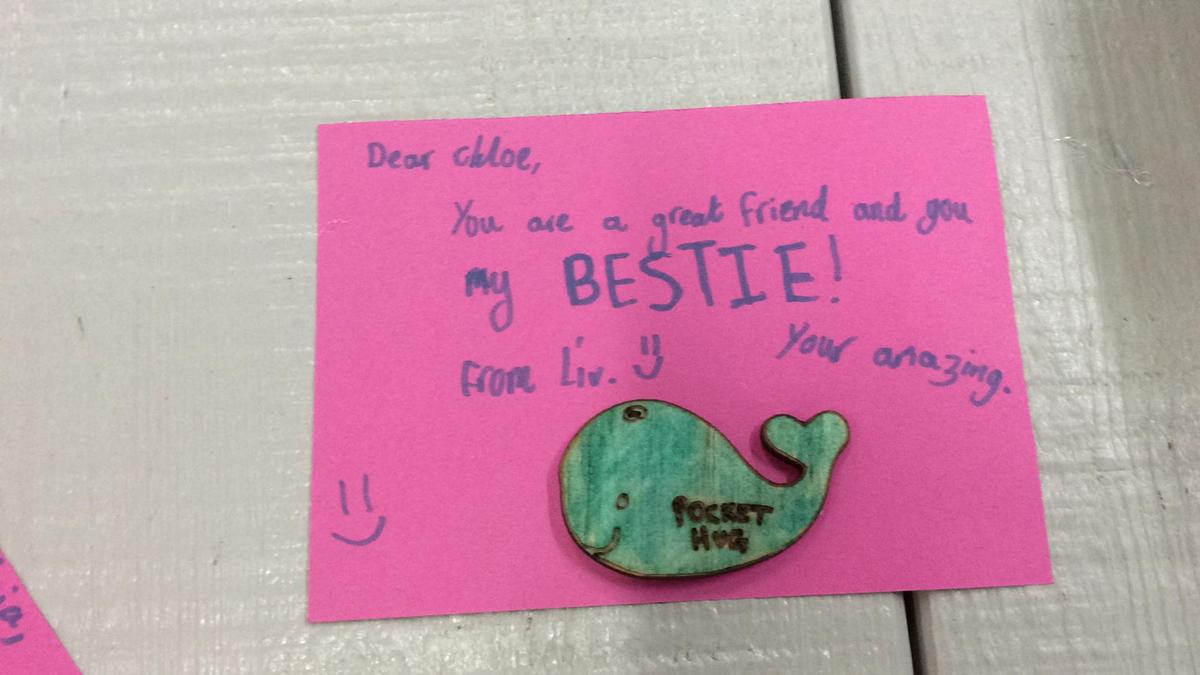 Dear Chloe,
You are a great friend and you
my BESTIE!
Your amazing.
From Liv.
POCKET
HUG